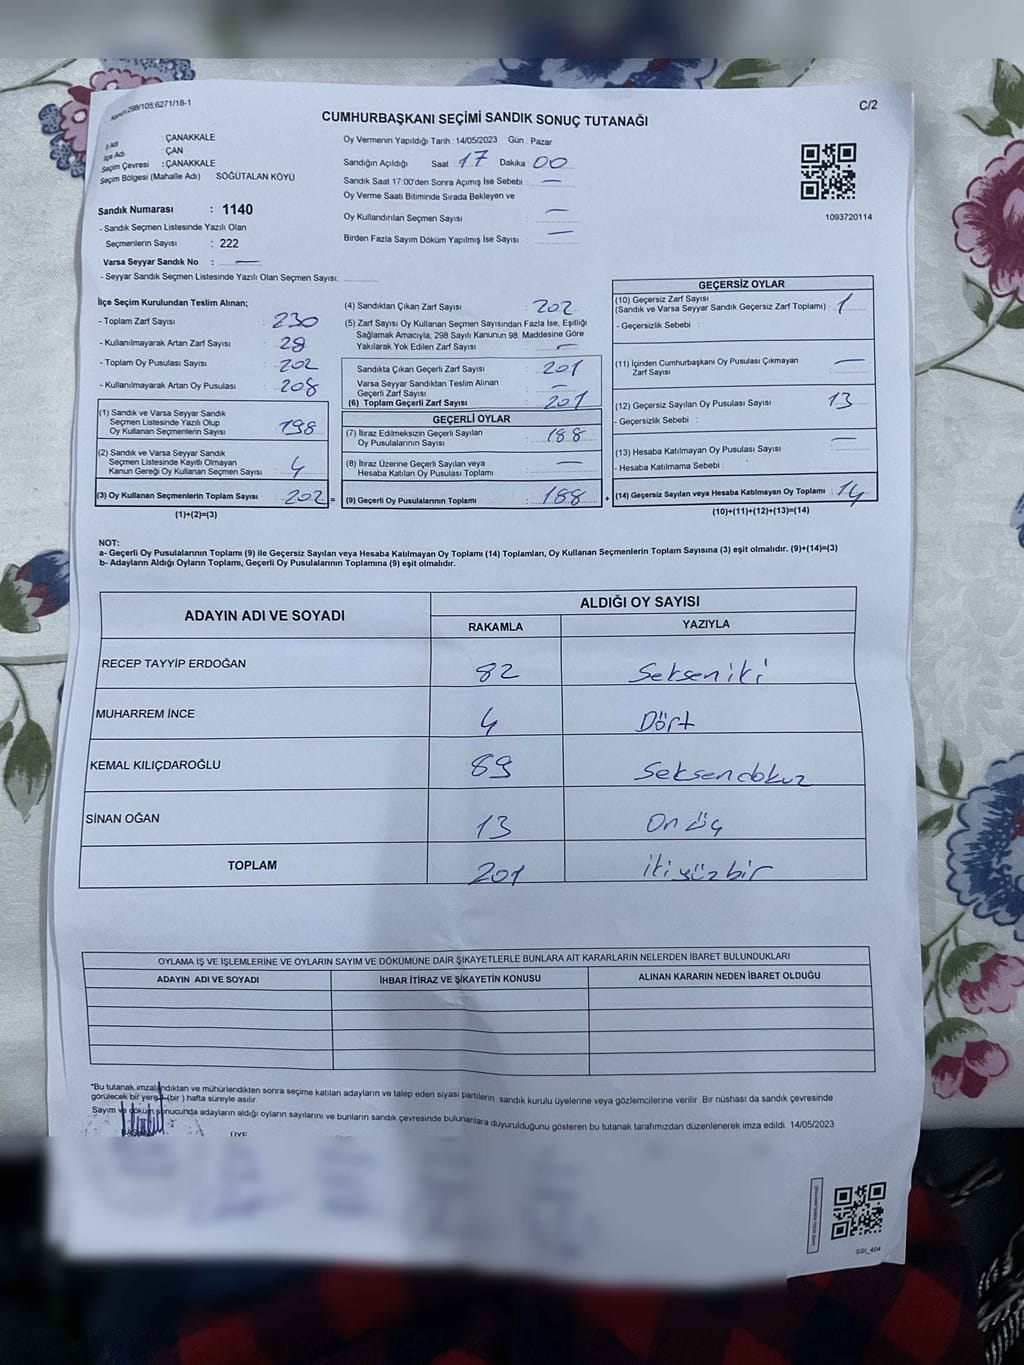 Kanun:298/105,6271/18-1
C/2
CUMHURBAŞKANI SEÇİMİ SANDIK SONUÇ TUTANAĞI
İl Adı : ÇANAKKALE
İlçe Adı : ÇAN
Seçim Çevresi : ÇANAKKALE
Seçim Bölgesi (Mahalle Adı) SÖĞÜTALAN KÖYÜ
Sandık Numarası : 1140
- Sandık Seçmen Listesinde Yazılı Olan
Seçmenlerin Sayısı : 222
Varsa Seyyar Sandık No : —
- Seyyar Sandık Seçmen Listesinde Yazılı Olan Seçmen Sayısı:
Oy Vermenin Yapıldığı Tarih : 14/05/2023 Gün : Pazar
Sandığın Açıldığı Saat : 17 Dakika : 00
Sandık Saat 17:00'den Sonra Açımış İse Sebebi : —
Oy Verme Saati Bitiminde Sırada Bekleyen ve
Oy Kullandırılan Seçmen Sayısı : —
Birden Fazla Sayım Döküm Yapılmış İse Sayısı : —
1093720114
İlçe Seçim Kurulundan Teslim Alınan;
- Toplam Zarf Sayısı : 230
- Kullanılmayarak Artan Zarf Sayısı : 28
- Toplam Oy Pusulası Sayısı : 202
- Kullanılmayarak Artan Oy Pusulası : 208
(1) Sandık ve Varsa Seyyar Sandık
Seçmen Listesinde Yazılı Olup
Oy Kullanan Seçmenlerin Sayısı : 198
(2) Sandık ve Varsa Seyyar Sandık
Seçmen Listesinde Kayıtlı Olmayan
Kanun Gereği Oy Kullanan Seçmen Sayısı : 4
(3) Oy Kullanan Seçmenlerin Toplam Sayısı : 202 =
(1)+(2)=(3)
(4) Sandıktan Çıkan Zarf Sayısı : 202
(5) Zarf Sayısı Oy Kullanan Seçmen Sayısından Fazla İse, Eşitliği
Sağlamak Amacıyla, 298 Sayılı Kanunun 98. Maddesine Göre
Yakılarak Yok Edilen Zarf Sayısı : —
Sandıkta Çıkan Geçerli Zarf Sayısı : 201
Varsa Seyyar Sandıktan Teslim Alınan
Geçerli Zarf Sayısı : —
(6) Toplam Geçerli Zarf Sayısı : 201
GEÇERLİ OYLAR
(7) İtiraz Edilmeksizin Geçerli Sayılan
Oy Pusulalarının Sayısı : 188
(8) İtiraz Üzerine Geçerli Sayılan veya
Hesaba Katılan Oy Pusulası Toplamı : —
(9) Geçerli Oy Pusulalarının Toplamı : 188 +
GEÇERSİZ OYLAR
(10) Geçersiz Zarf Sayısı
(Sandık ve Varsa Seyyar Sandık Geçersiz Zarf Toplamı) : 1
- Geçersizlik Sebebi :
(11) İçinden Cumhurbaşkanı Oy Pusulası Çıkmayan
Zarf Sayısı : —
(12) Geçersiz Sayılan Oy Pusulası Sayısı : 13
- Geçersizlik Sebebi :
(13) Hesaba Katılmayan Oy Pusulası Sayısı : —
- Hesaba Katılmama Sebebi :
(14) Geçersiz Sayılan veya Hesaba Katılmayan Oy Toplamı : 14
(10)+(11)+(12)+(13)=(14)
NOT:
a- Geçerli Oy Pusulalarının Toplamı (9) ile Geçersiz Sayılan veya Hesaba Katılmayan Oy Toplamı (14) Toplamları, Oy Kullanan Seçmenlerin Toplam Sayısına (3) eşit olmalıdır. (9)+(14)=(3)
b- Adayların Aldığı Oyların Toplamı, Geçerli Oy Pusulalarının Toplamına (9) eşit olmalıdır.
ADAYIN ADI VE SOYADI ALDIĞI OY SAYISI
RAKAMLA YAZIYLA
RECEP TAYYİP ERDOĞAN 82 Sekseniki
MUHARREM İNCE 4 Dört
KEMAL KILIÇDAROĞLU 89 Seksendokuz
SİNAN OĞAN 13 Onüç
TOPLAM 201 ikiyüzbir
OYLAMA İŞ VE İŞLEMLERİNE VE OYLARIN SAYIM VE DÖKÜMÜNE DAİR ŞİKAYETLERLE BUNLARA AİT KARARLARIN NELERDEN İBARET BULUNDUKLARI
ADAYIN ADI VE SOYADI İHBAR İTİRAZ VE ŞİKAYETİN KONUSU ALINAN KARARIN NEDEN İBARET OLDUĞU
*Bu tutanak imzalandıktan ve mühürlendikten sonra seçime katılan adayların ve talep eden siyasi partilerin sandık kurulu üyelerine veya gözlemcilerine verilir. Bir nüshası da sandık çevresinde
görülecek bir yere (bir ) hafta süreyle asılır.
Sayım ve döküm sonucunda adayların aldığı oyların sayılarını ve bunların sandık çevresinde bulunanlara duyurulduğunu gösteren bu tutanak tarafımızdan düzenlenerek imza edildi. 14/05/2023
BAŞKAN ÜYE
SSI_404